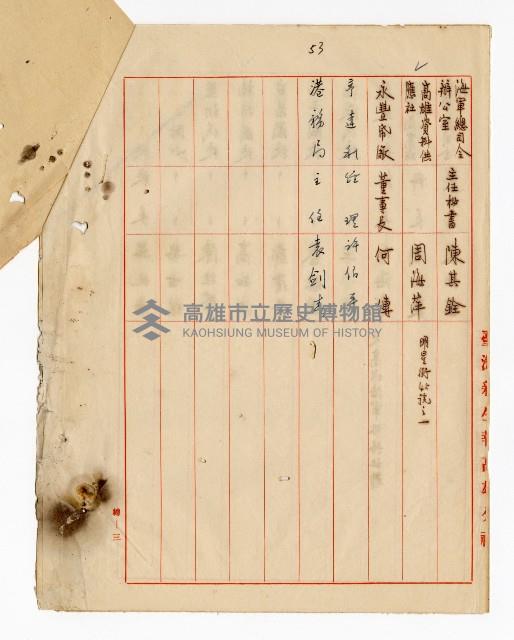 53
海軍總司令
辦公室
主任秘書
陳其銓
高雄資料供
應社
周海萍
明星街
號之一
永豐
董事長
何傳
亨達利經理許伯
港務局主任袁劍
高雄市立歷史博物館
KAOHSIUNG MUSEUM OF HISTORY
臺灣新生報高雄分社
總—三